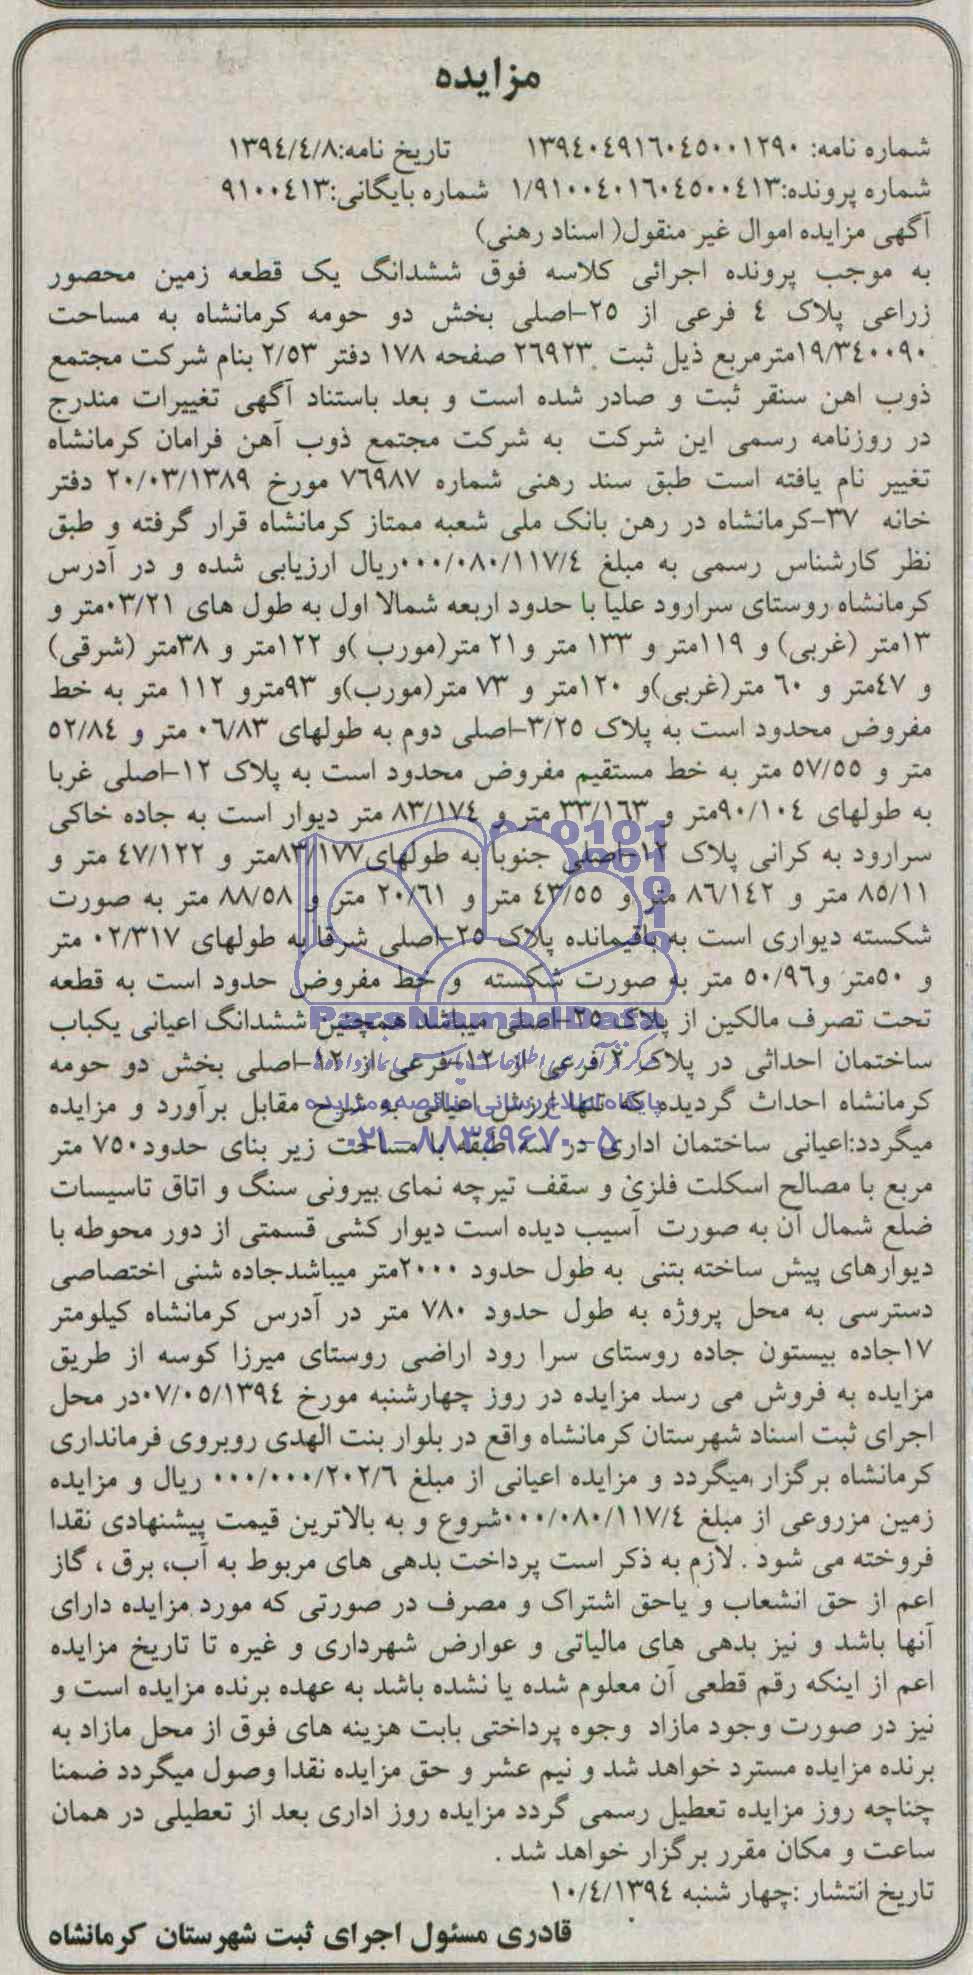 مزایده
شماره نامه: ۱۳۹۴۰۴۹۱۶۰۴۵۰۰۱۲۹۰ تاریخ نامه:۱۳۹۴/۴/۸
شماره پرونده:۱/۹۱۰۰۴۰۱۶۰۴۵۰۰۴۱۳ شماره بایگانی:۹۱۰۰۴۱۳
آگهی مزایده اموال غیر منقول( اسناد رهنی)
به موجب پرونده اجرائی کلاسه فوق ششدانگ یک قطعه زمین محصور
زراعی پلاک ۴ فرعی از ۲۵-اصلی بخش دو حومه کرمانشاه به مساحت
۱۹/۳۴۰۰۹۰مترمربع ذیل ثبت ۲۶۹۲۳ صفحه ۱۷۸ دفتر ۲/۵۳ بنام شرکت مجتمع
ذوب اهن سنقر ثبت و صادر شده است و بعد باستناد آگهی تغییرات مندرج
در روزنامه رسمی این شرکت به شرکت مجتمع ذوب آهن فرامان کرمانشاه
تغییر نام یافته است طبق سند رهنی شماره ۷۶۹۸۷ مورخ ۲۰/۰۳/۱۳۸۹ دفتر
خانه ۳۷-کرمانشاه در رهن بانک ملی شعبه ممتاز کرمانشاه قرار گرفته و طبق
نظر کارشناس رسمی به مبلغ ۰۰۰/۰۸۰/۱۱۷/۴ریال ارزیابی شده و در آدرس
کرمانشاه روستای سرارود علیا با حدود اربعه شمالا اول به طول های ۰۳/۲۱متر و
۱۳متر (غربی) و ۱۱۹متر و ۱۳۳ متر و ۲۱ متر(مورب )و ۱۲۲متر و ۳۸متر (شرقی)
و ۴۷متر و ۶۰ متر(غربی)و ۱۲۰متر و ۷۳ متر(مورب)و ۹۳مترو ۱۱۲ متر به خط
مفروض محدود است به پلاک ۳/۲۵-اصلی دوم به طولهای ۰۶/۸۳ متر و ۵۲/۸۴
متر و ۵۷/۵۵ متر به خط مستقیم مفروض محدود است به پلاک ۱۲-اصلی غربا
به طولهای ۹۰/۱۰۴متر و ۳۳/۱۶۳ متر و ۸۳/۱۷۴ متر دیوار است به جاده خاکی
سرارود به کرانی پلاک ۱۲-اصلی جنوبا به طولهای۸۳/۱۷۷متر و ۴۷/۱۲۲ متر و
۸۵/۱۱ متر و ۸۶/۱۴۲ متر و ۴۳/۵۵ متر و ۲۰/۶۱ متر و ۸۸/۵۸ متر به صورت
شکسته دیواری است به باقیمانده پلاک ۲۵-اصلی شرقا به طولهای ۰۲/۳۱۷ متر
و ۵۰متر و۵۰/۹۶ متر به صورت شکسته و خط مفروض حدود است به قطعه
تحت تصرف مالکین از پلاک ۲۵-اصلی میباشد همچنین ششدانگ اعیانی یکباب
ساختمان احداثی در پلاک ۲ فرعی از ۱۲-فرعی از ۱۲-اصلی بخش دو حومه
کرمانشاه احداث گردیده که تنها ارزش اعیانی به شرح مقابل برآورد و مزایده
میگردد:اعیانی ساختمان اداری در سه طبقه با مساحت زیر بنای حدود۷۵۰ متر
مربع با مصالح اسکلت فلزی و سقف تیرچه نمای بیرونی سنگ و اتاق تاسیسات
ضلع شمال آن به صورت آسیب دیده است دیوار کشی قسمتی از دور محوطه با
دیوارهای پیش ساخته بتنی به طول حدود ۲۰۰۰متر میباشدجاده شنی اختصاصی
دسترسی به محل پروژه به طول حدود ۷۸۰ متر در آدرس کرمانشاه کیلومتر
۱۷جاده بیستون جاده روستای سرا رود اراضی روستای میرزا کوسه از طریق
مزایده به فروش می رسد مزایده در روز چهارشنبه مورخ ۰۷/۰۵/۱۳۹۴در محل
اجرای ثبت اسناد شهرستان کرمانشاه واقع در بلوار بنت الهدی روبروی فرمانداری
کرمانشاه برگزار میگردد و مزایده اعیانی از مبلغ ۰۰۰/۰۰۰/۲۰۲/۶ ریال و مزایده
زمین مزروعی از مبلغ ۰۰۰/۰۸۰/۱۱۷/۴شروع و به بالاترین قیمت پیشنهادی نقدا
فروخته می شود . لازم به ذکر است پرداخت بدهی های مربوط به آب، برق ، گاز
اعم از حق انشعاب و یاحق اشتراک و مصرف در صورتی که مورد مزایده دارای
آنها باشد و نیز بدهی های مالیاتی و عوارض شهرداری و غیره تا تاریخ مزایده
اعم از اینکه رقم قطعی آن معلوم شده یا نشده باشد به عهده برنده مزایده است و
نیز در صورت وجود مازاد وجوه پرداختی بابت هزینه های فوق از محل مازاد به
برنده مزایده مسترد خواهد شد و نیم عشر و حق مزایده نقدا وصول میگردد ضمنا
چناچه روز مزایده تعطیل رسمی گردد مزایده روز اداری بعد از تعطیلی در همان
ساعت و مکان مقرر برگزار خواهد شد .
تاریخ انتشار :چهار شنبه ۱۰/۴/۱۳۹۴
قادری مسئول اجرای ثبت شهرستان کرمانشاه
ParsNamadData
پایگاه اطلاع رسانی مناقصه و مزایده
۰۲۱-۸۸۳۴۹۶۷۰-۵